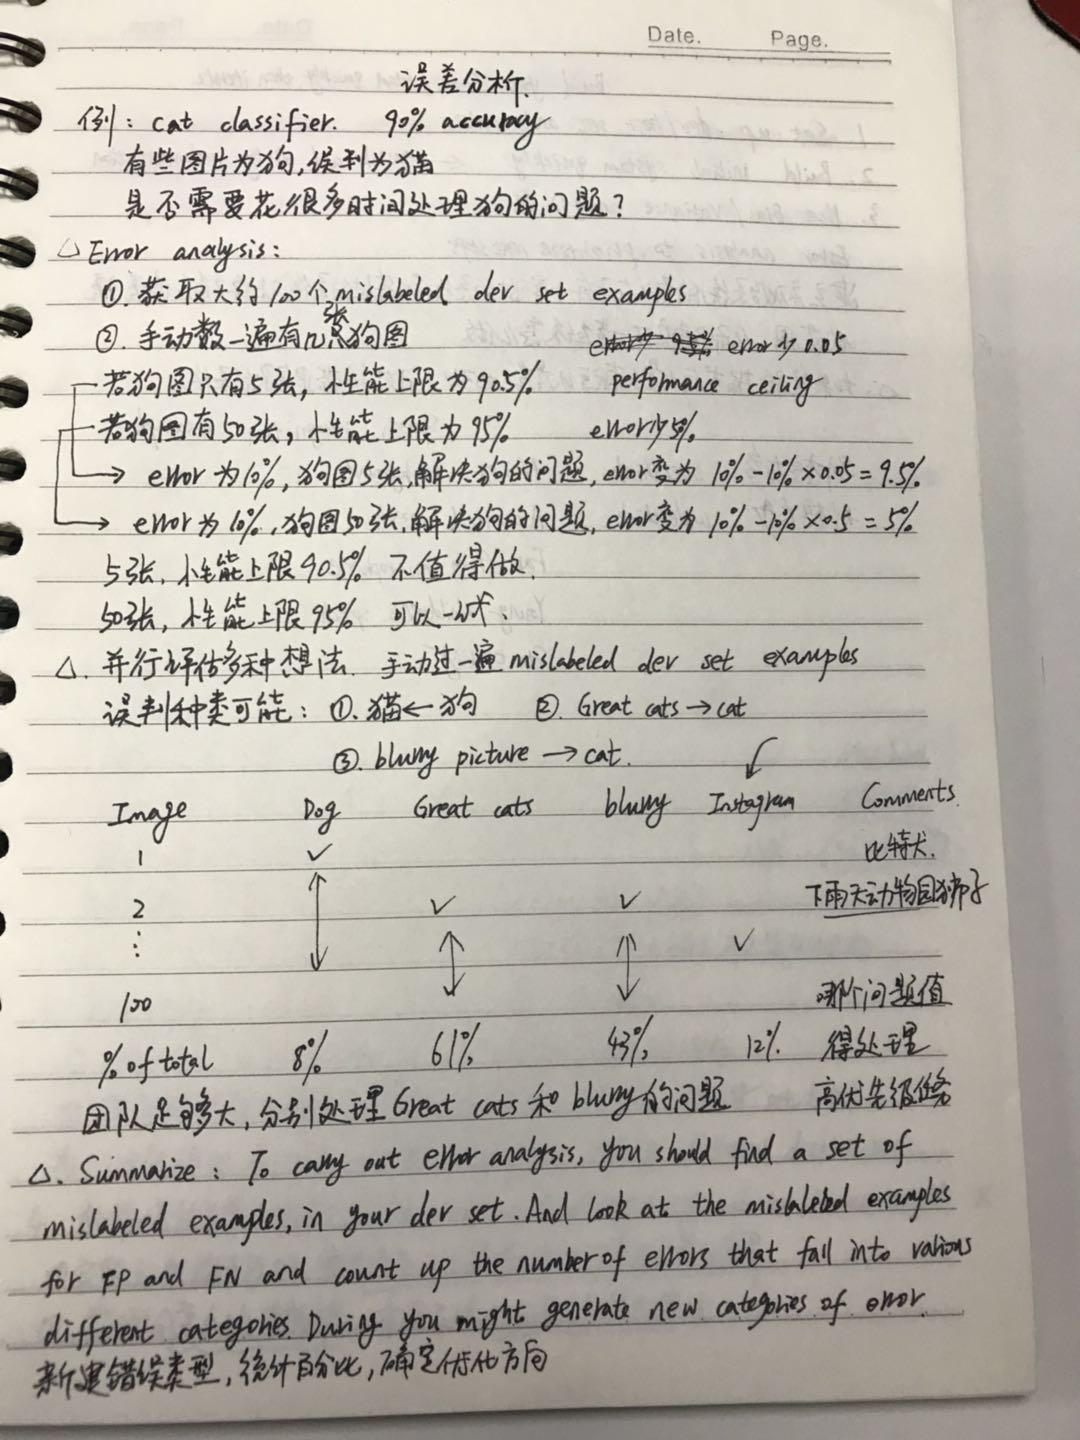 Date. Page.
误差分析.
例: cat classifier. 90% accuracy
有些图片为狗,误判为猫
是否需要花很多时间处理狗的问题?
△ Error analysis:
①. 获取大约100个 mislabeled dev set examples
②. 手动数一遍有几张狗图 error少0.05
若狗图只有5张, 性能上限为90.5% performance ceiling
若狗图有50张, 性能上限为95% error少5%
→ error为10%, 狗图5张,解决狗的问题, error变为 10%-10%×0.05=9.5%
→ error为10%, 狗图50张,解决狗的问题, error变为 10%-10%×0.5=5%
5张, 性能上限90.5% 不值得做.
50张, 性能上限95% 可以一试.
△. 并行评估多种想法. 手动过一遍 mislabeled dev set examples
误判种类可能: ①. 猫←狗 ②. Great cats→cat
③. blurry picture → cat.
Image Dog Great cats blurry Instagram Comments.
1 ✓ 比特犬.
2 ✓ ✓ 下雨天动物园狮子
⋮ ✓
100 哪个问题值
% of total 8% 61% 43% 12% 得处理
团队足够大, 分别处理 Great cats 和 blurry的问题 高优先级
△. Summarize: To carry out error analysis, you should find a set of
mislabeled examples, in your dev set. And look at the mislabeled examples
for FP and FN and count up the number of errors that fall into various
different categories. During you might generate new categories of error.
新建错误类型, 统计百分比, 确定优化方向